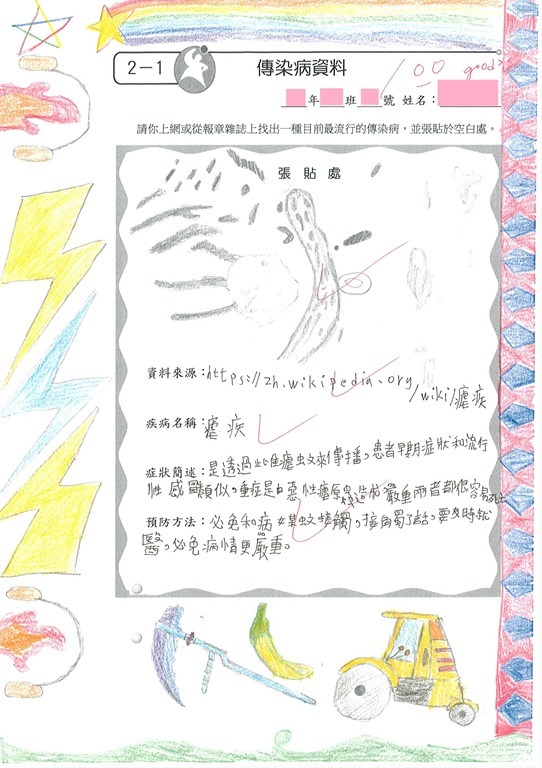 2-1
傳染病資料
100 good
年 班 號 姓名:
請你上網或從報章雜誌上找出一種目前最流行的傳染病,並張貼於空白處。
張貼處
資料來源:https://zh.wikipedia.org
/wiki/瘧疾
疾病名稱:瘧疾
症狀簡述:是透過 雌瘧蚊來傳播。患者早期症狀和流行
性感冒類似。重症是由惡性瘧原虫造成 嚴重兩者都很容易死亡
預防方法:必免和病媒蚊接觸,接觸了話,要及時就
醫,必免病情更嚴重。